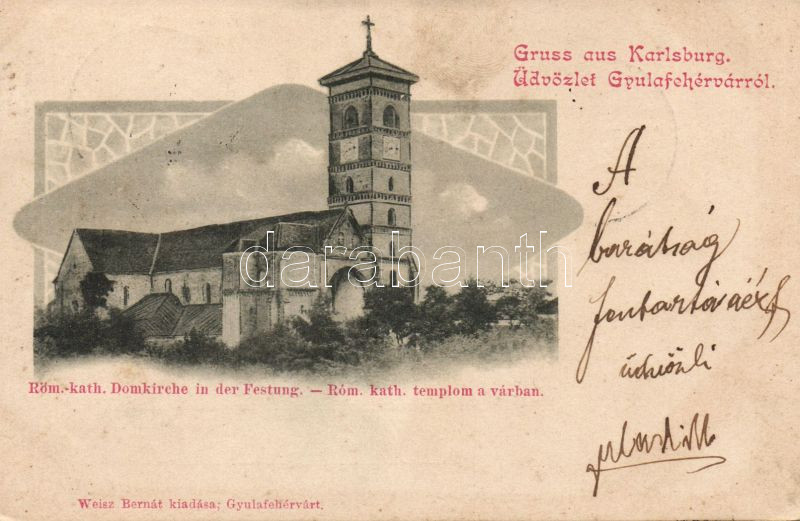 Gruss aus Karlsburg.
Üdvözlet Gyulafehérvárról.
A
barátság
fentartásáért
üdvözli
darabanth.com
Röm.-kath. Domkirche in der Festung. — Róm. kath. templom a várban.
Weisz Bernát kiadása; Gyulafehérvárt.